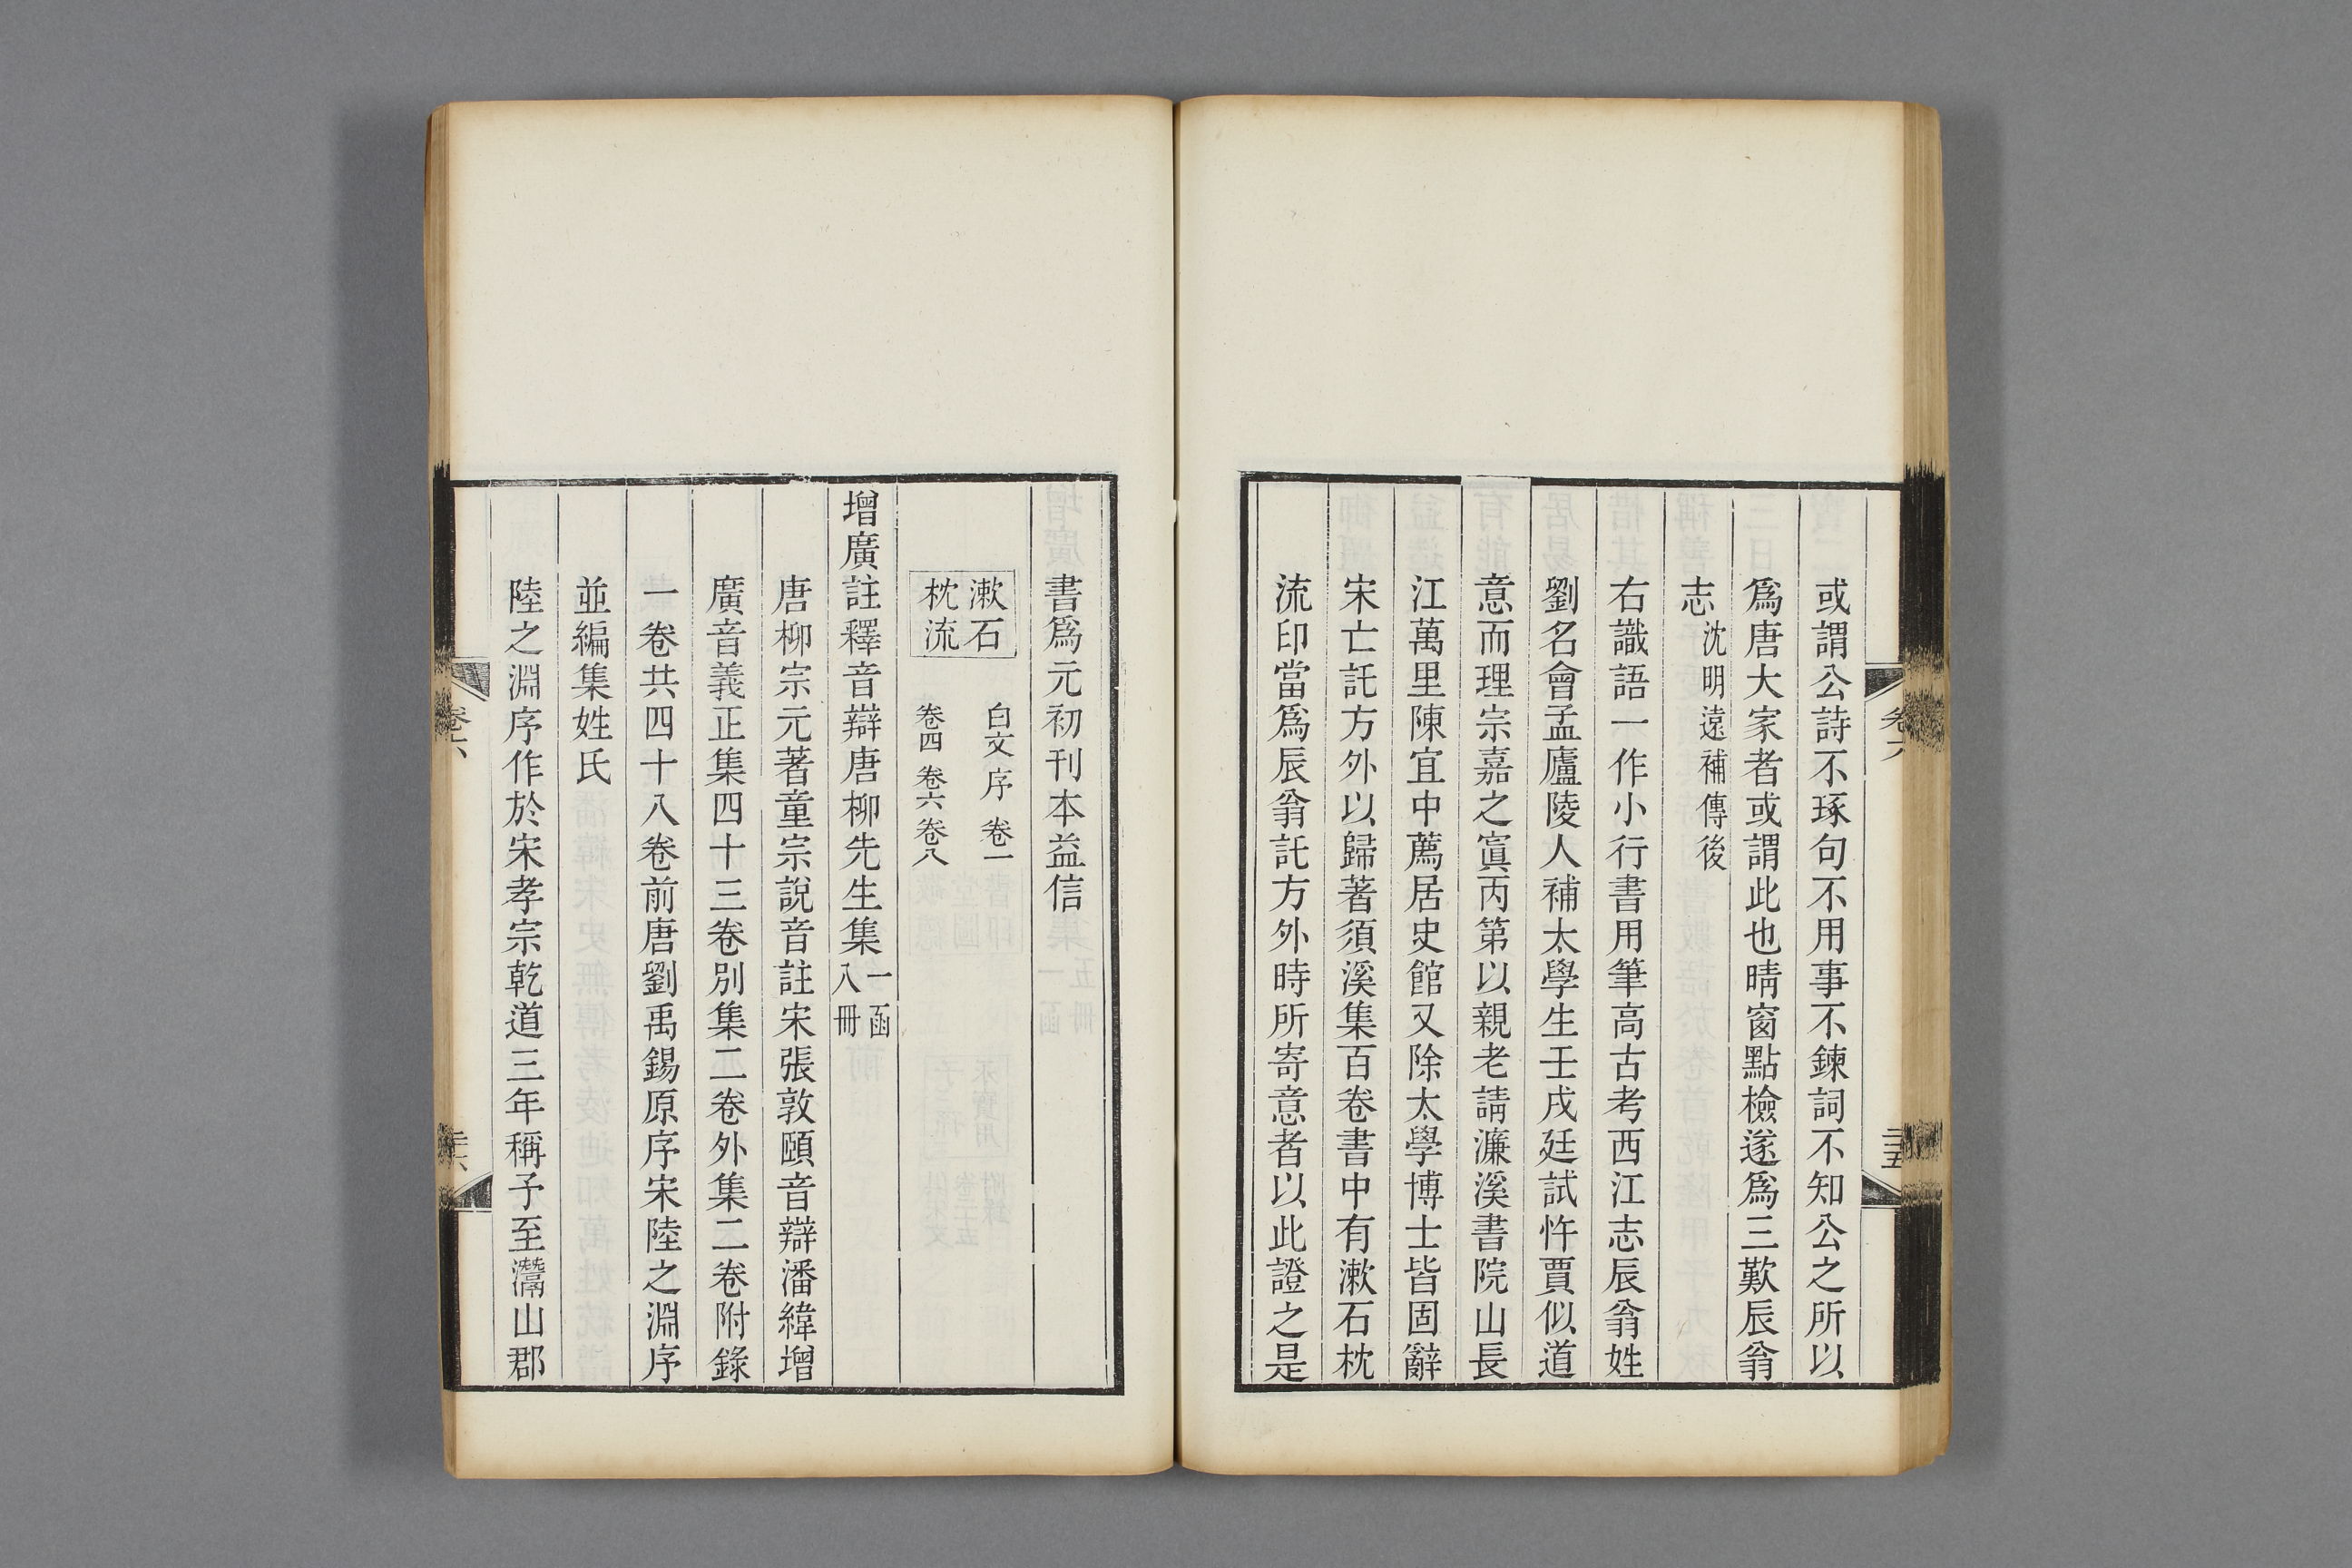 或謂公詩不琢句不用事不鍊詞不知公之所以
爲唐大家者或謂此也晴窗點檢遂爲三歎辰翁
志沈明遠補傳後
右識語一作小行書用筆高古考西江志辰翁姓
劉名會孟廬陵人補太學生壬戌廷試忤賈似道
意而理宗嘉之寘丙第以親老請濂溪書院山長
江萬里陳宜中薦居史館又除太學博士皆固辭
宋亡託方外以歸著須溪集百卷書中有漱石枕
流印當爲辰翁託方外時所寄意者以此證之是
卷六
二十五
書爲元初刊本益信
漱石
枕流
白文 序 卷一
卷四 卷六 卷八
增廣註釋音辯唐柳先生集一函
八冊
唐柳宗元著童宗說音註宋張敦頤音辯潘緯增
廣音義正集四十三卷別集二卷外集二卷附錄
一卷共四十八卷前唐劉禹錫原序宋陸之淵序
並編集姓氏
陸之淵序作於宋孝宗乾道三年稱予至灊山郡
卷六
二十六